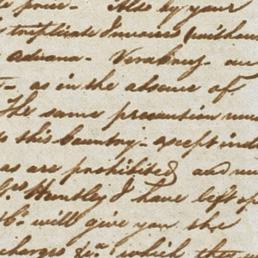 price - Also by your
triplicate Invoices without
adriana - Verabruz - an
- as in the absence of
The same precaution mus
to this Country - except ind
as are prohibited and
Huntley I have left
will give you the
charges &c.a which they